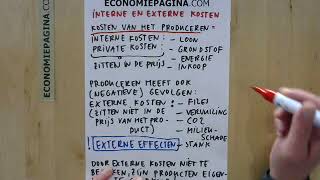 ECONOMIEPAGINA.COM
INTERNE EN EXTERNE KOSTEN
KOSTEN VAN HET PRODUCEREN =
INTERNE KOSTEN: - LOON
PRIVATE KOSTEN: - GRONDSTOF
- ENERGIE
ZITTEN IN DE PRIJS - INKOOP
PRODUCEREN HEEFT OOK
(NEGATIEVE) GEVOLGEN:
EXTERNE KOSTEN: - FILES
(ZITTEN NIET IN DE - VERVUILING
PRIJS VAN HET PRO- - CO2
DUCT) - MILIEU-
SCHADE
! EXTERNE EFFECTEN - STANK
DOOR EXTERNE KOSTEN NIET TE
REKENEN, ZIJN PRODUCTEN EIGEN-